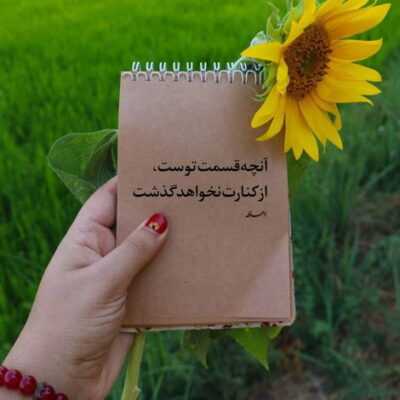 آنچه قسمت توست،
از کنارت نخواهد گذشت